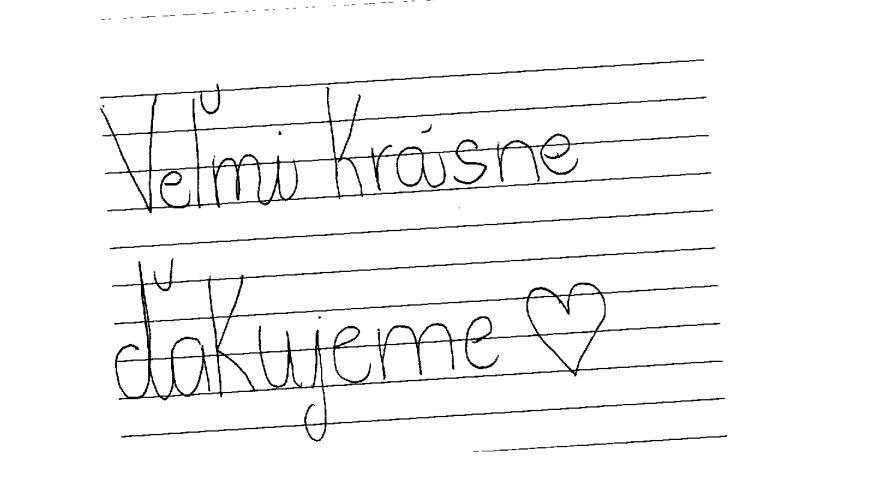 Veľmi Krásne
ďakujeme ♡